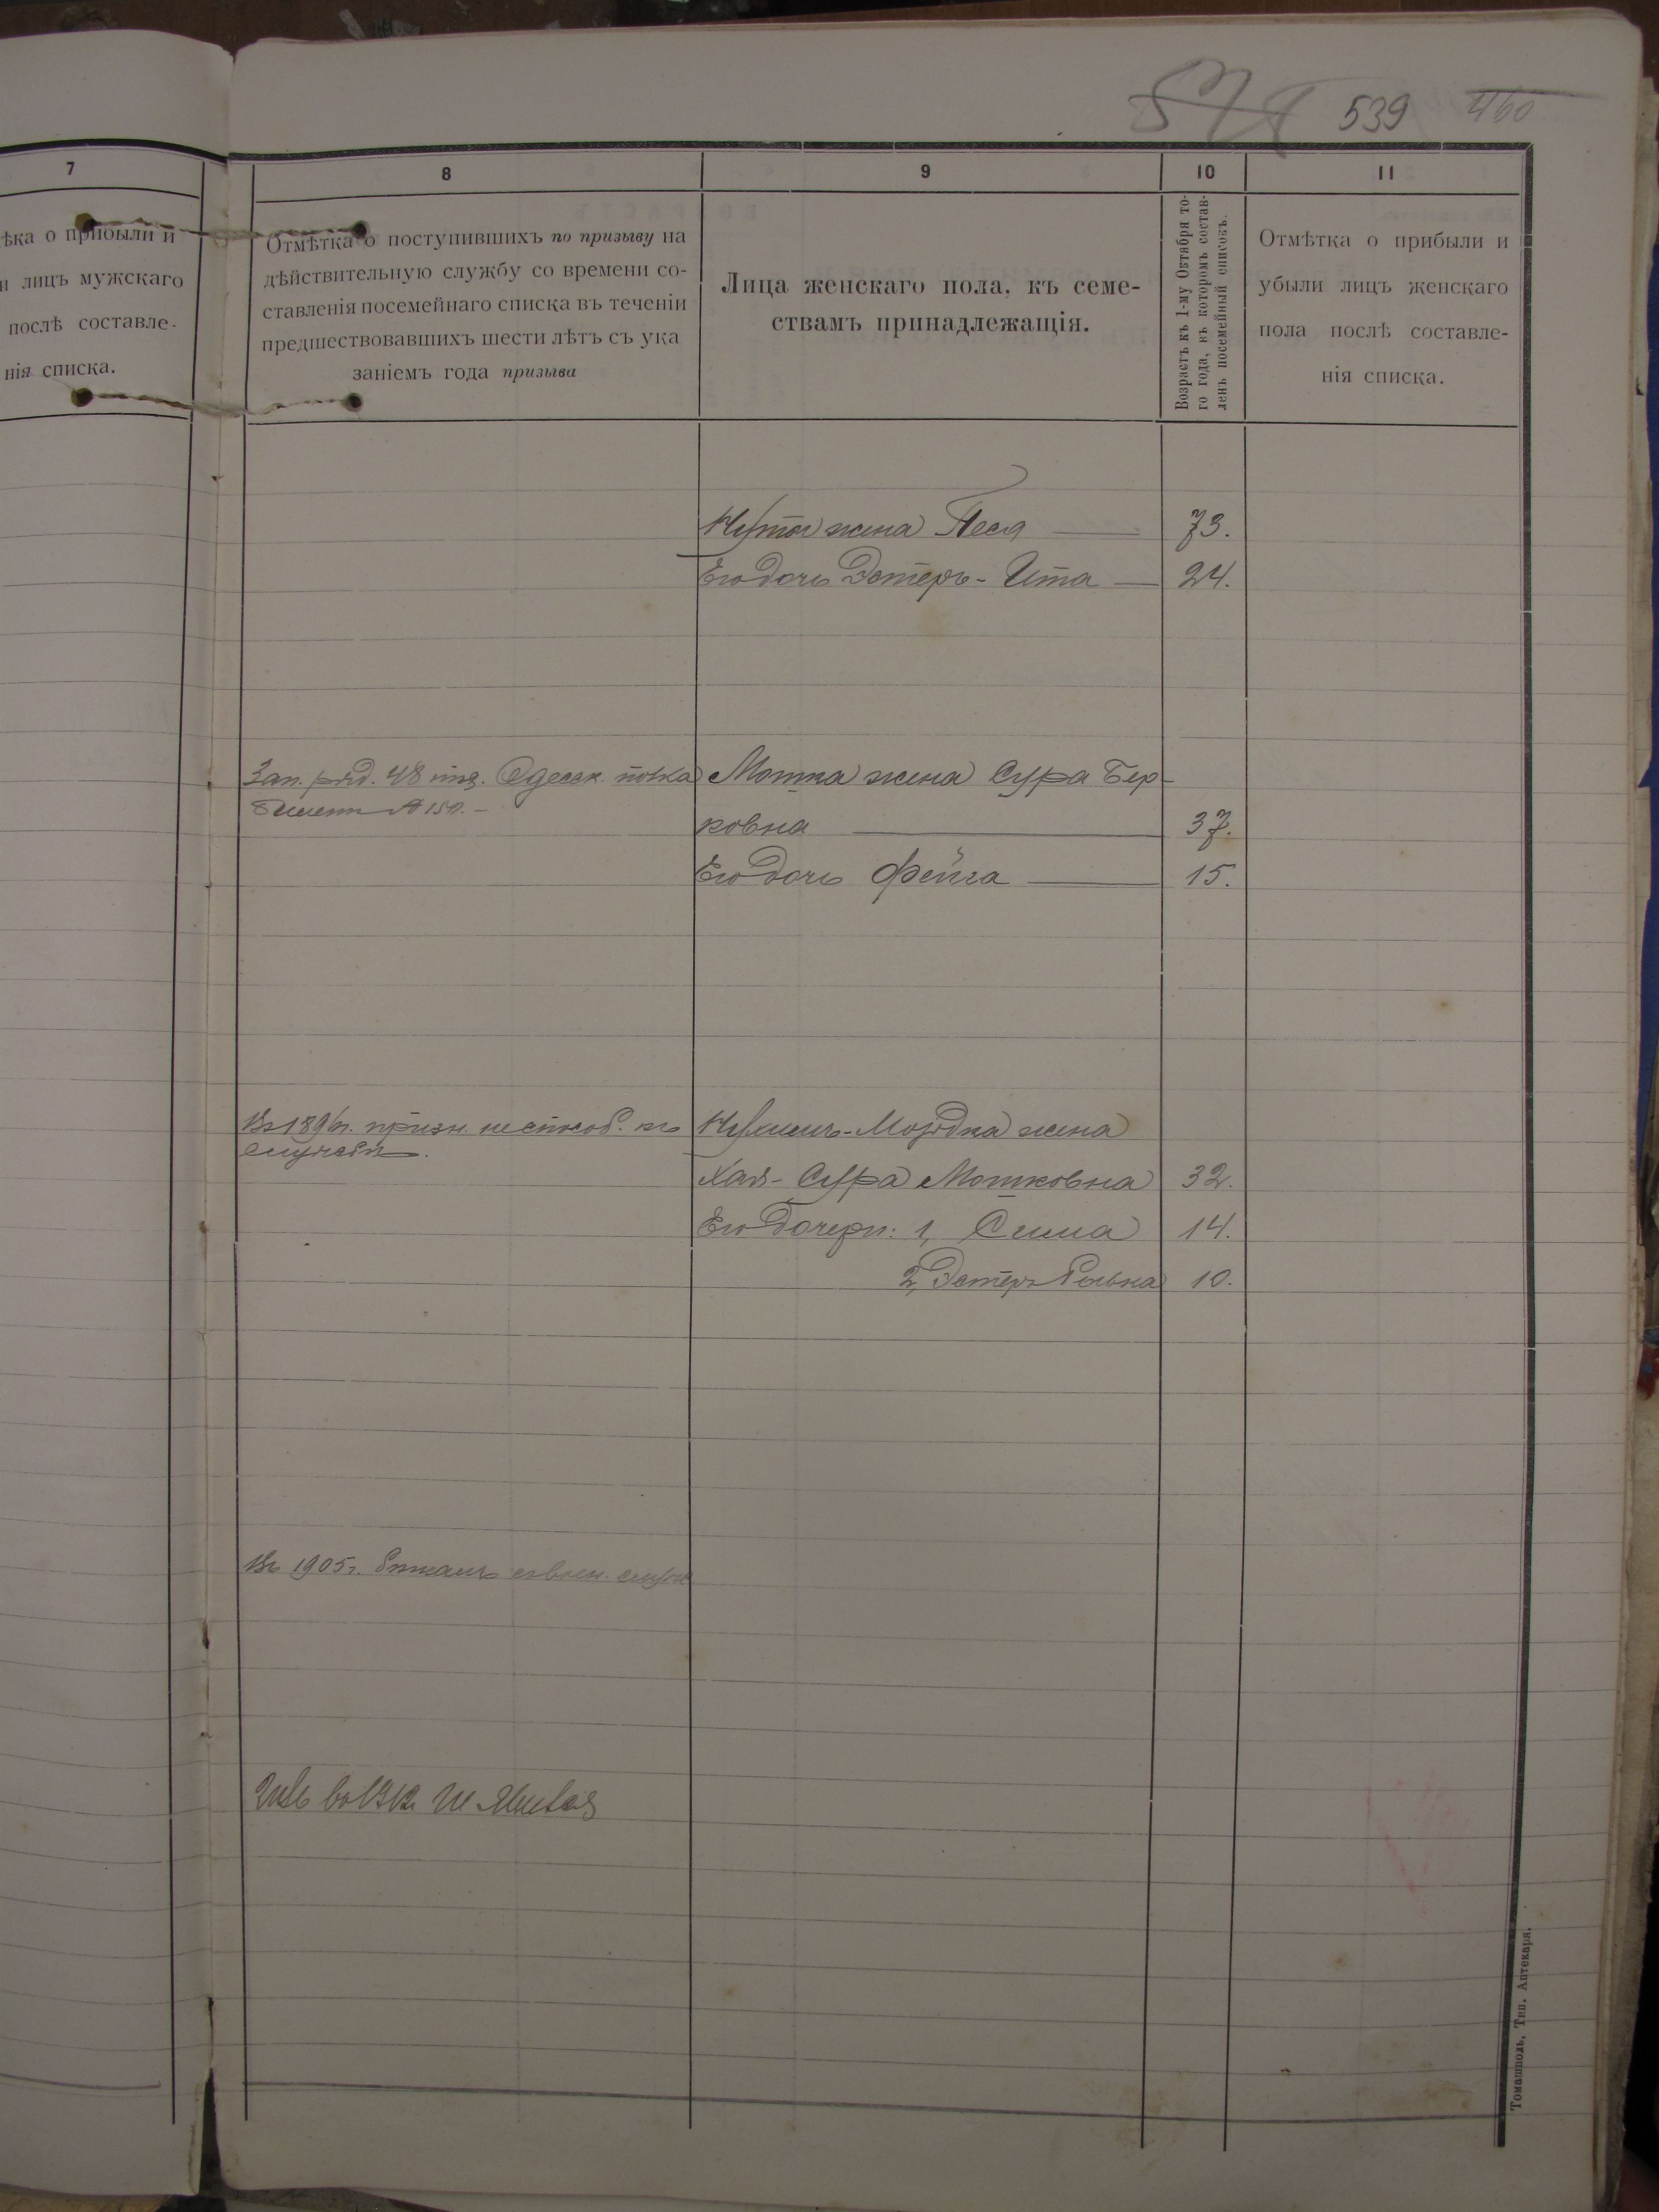 539 460
7
ѣка о прибыли и
и лицъ мужскаго
послѣ составле-
нія списка.
8
Отмѣтка о поступившихъ по призыву на
дѣйствительную службу со времени со-
ставленія посемейнаго списка въ теченіи
предшествовавшихъ шести лѣтъ съ ука
заніемъ года призыва
9
Лица женскаго пола, къ семе-
ствамъ принадлежащія.
10
Возрастъ къ 1-му Октября то-
го года, въ которомъ состав-
ленъ посемейный списокъ.
11
Отмѣтка о прибыли и
убыли лицъ женскаго
пола послѣ составле-
нія списка.
жена Песя 73.
Его дочь Эстеръ-Ита 24.
Зап. ряд. 48 пѣх. Одесск. полка
Билетъ № 150.
Мошка жена Сура Бер-
ковна 37.
Его дочь Фейга 15.
Въ 189 г. призн. неспособ. къ
службѣ.
Мордка жена
Хая-Сура Мошковна 32.
Его дочери: 1, Сима 14.
2, Эстеръ 10.
Въ 1905 г. бѣжалъ съ воен. служ
Томашполь, Тип. Аптекаря.